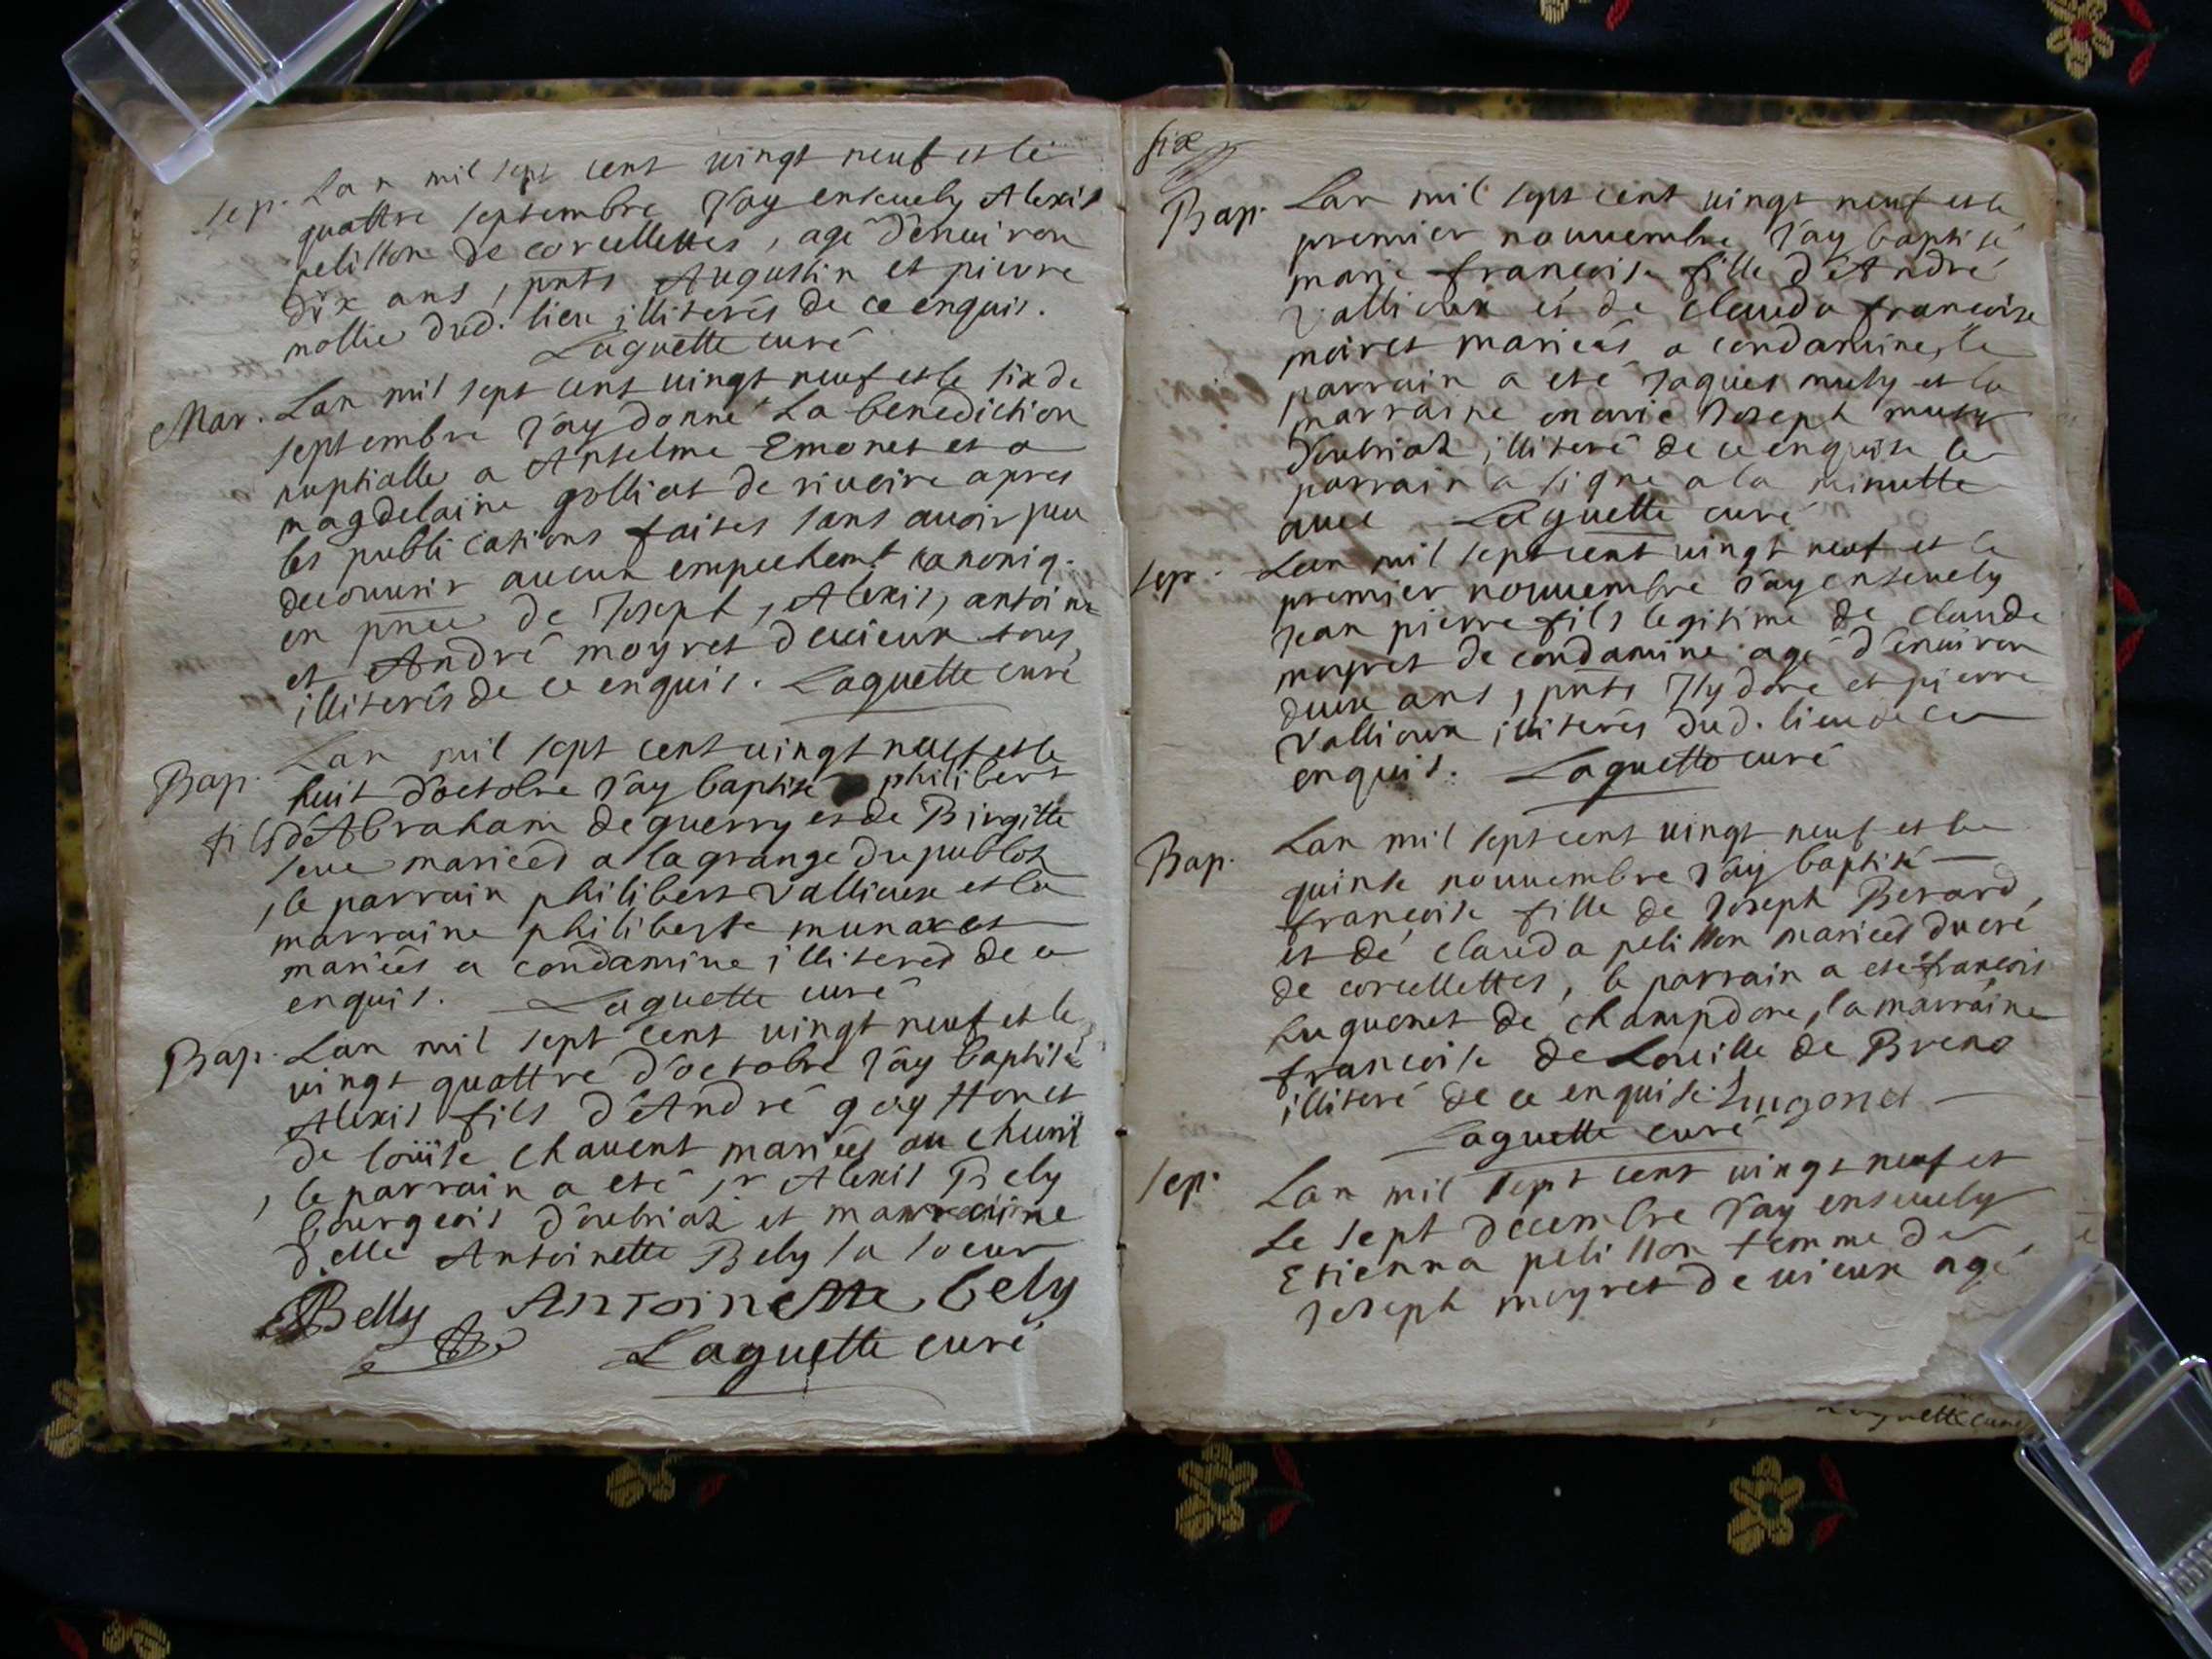 sep. Lan mil sept cent uingt neuf et le
quattre septembre J'ay enseuely Alexis
pelisson de corcellettes, agé d'enuiron
dix ans, pnts Augustin et pierre
mollie dud. lieu illiterés de ce enquis.
Laguette curé
Mar. Lan mil sept cent uingt neuf et le six de
septembre J'ay donné La benediction
nuptialle a Anselme Emonet et a
magdelaine golliat de riuoire apres
les publications faites sans auoir peu
decouurir aucun empechemt canoniq.
en pnce de Joseph, Alexis, antoine
et André moyret de uieux tous
illiterés de ce enquis. Laguette curé
Bap. Lan mil sept cent uingt neuf et le
huit d'octobre J'ay baptisé philibert
fils d'Abraham de guerry et de Birgitte
seue mariées a la grange du publoz
, le parrain philibert Vallieux et la
marraine philiberte munaret
mariées a condamine illiteres de ce
enquis. Laguette curé
Bap. Lan mil sept cent uingt neuf et le
uingt quattre d'octobre J'ay baptisé
Alexis fils d'André goyffon et
de loüise chauent mariées au chuni
, le parrain a eté sr Alexis Bely
bourgeois d'oubriaz et marraine
d.elle Antoinette Bely sa soeur
Belly Antoinette bely
Laguette curé
six
Bap. Lan mil sept cent uingt neuf et le
premier nouuembre J'ay baptisé
marie francoise fille d'André
Vallieux et de clauda francoise
moiret mariées a condamine, le
parrain a eté Jaques muty et la
marraine marie Joseph muty
d'oubriaz illiteré de ce enquise le
parrain a signe a la minutte
auec Laguette curé
sep. Lan mil sept cent uingt neuf et le
premier nouuembre J'ay enseuely
Jean pierre fils legitime de claude
moyret de condamine agé d'enuiron
deux ans, pnts Isydore et pierre
Vallioux illiterés dud. lieu de ce
enquis. Laguette curé
Bap. Lan mil sept cent uingt neuf et le
quinse nouuembre J'ay baptisé
françoise fille de Joseph Berard
et de clauda pelisson mariées du cré
de corcellettes, le parrain a eté francois
huguenet de champdore, la marraine
francoise de Louille de Breno
illiteré de ce enquise. hugonet
Laguette curé
sep. Lan mil sept cent uingt neuf et
le sept decembre J'ay enseuely
Etienna pelisson femme de
Joseph moyret de uieux agé